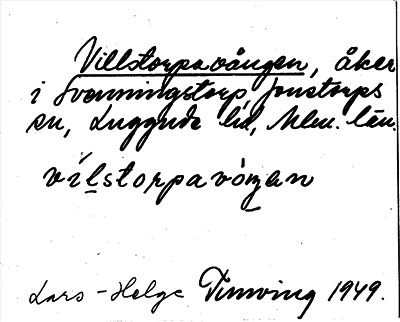 Villstorpavången, åker
i Svenningstorp, Jonstorps
sn, Luggude hd, Mlm. län.
vílstorpavóŋan
Lars-Helge Timving 1949.